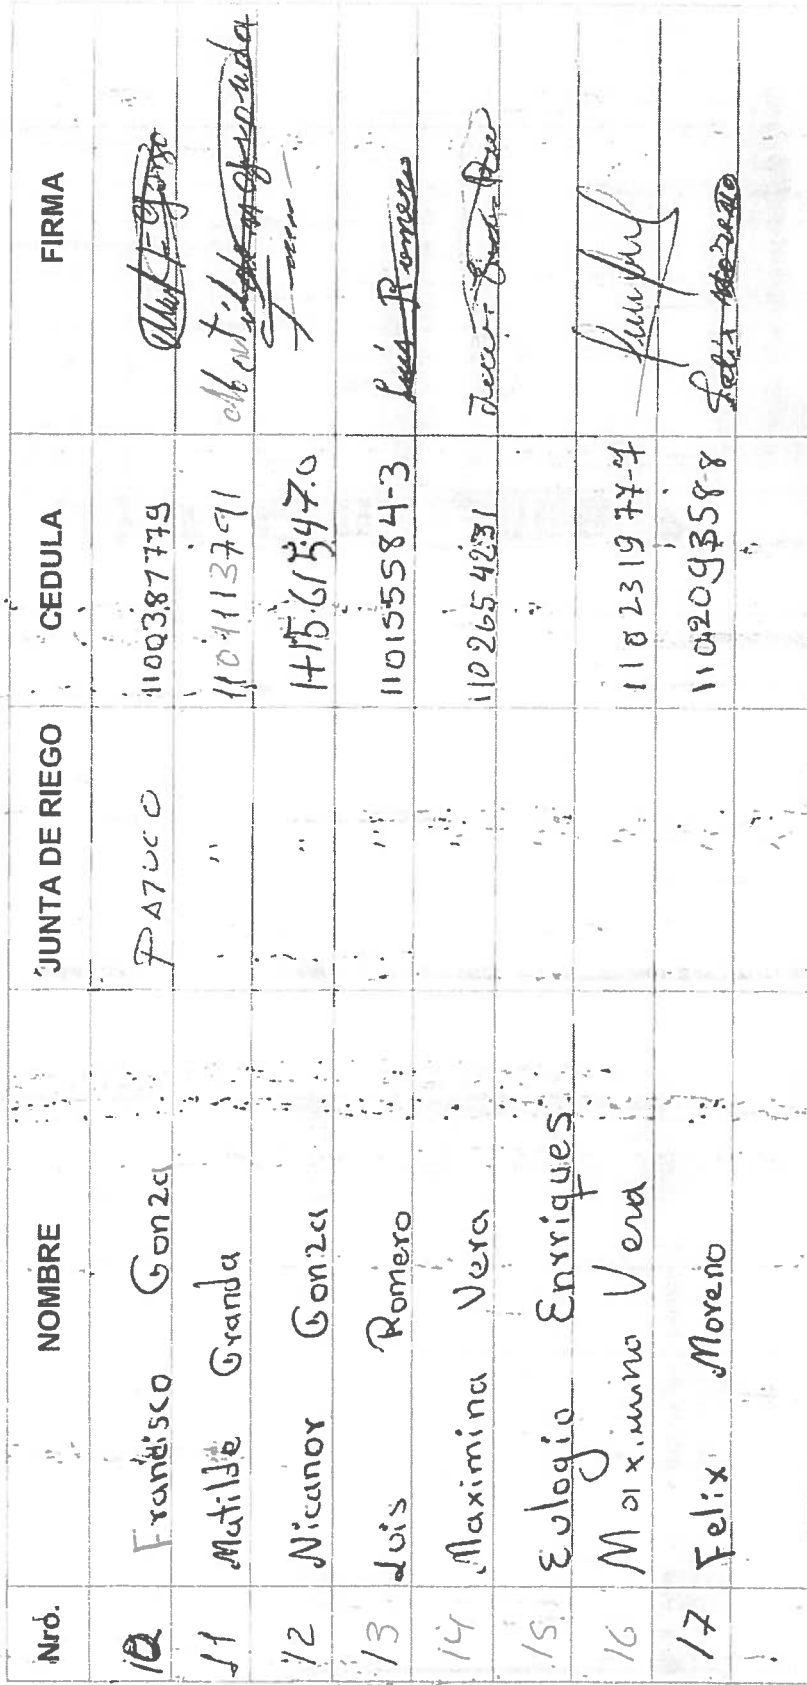 Nro. NOMBRE JUNTA DE RIEGO CEDULA FIRMA
10 Francisco Gonza PATUCO 1100387779
11 Matilde Granda " 1104113791 Matilde
12 Nicanor Gonza "
13 Luis Romero " 110155584-3 Luis Romero
14 Maximina Vera "
15 Eulogio Enrriques "
16 Maximino Vera " 110231977-7
17 Felix Moreno " 110209358-8 Felix Moreno
"